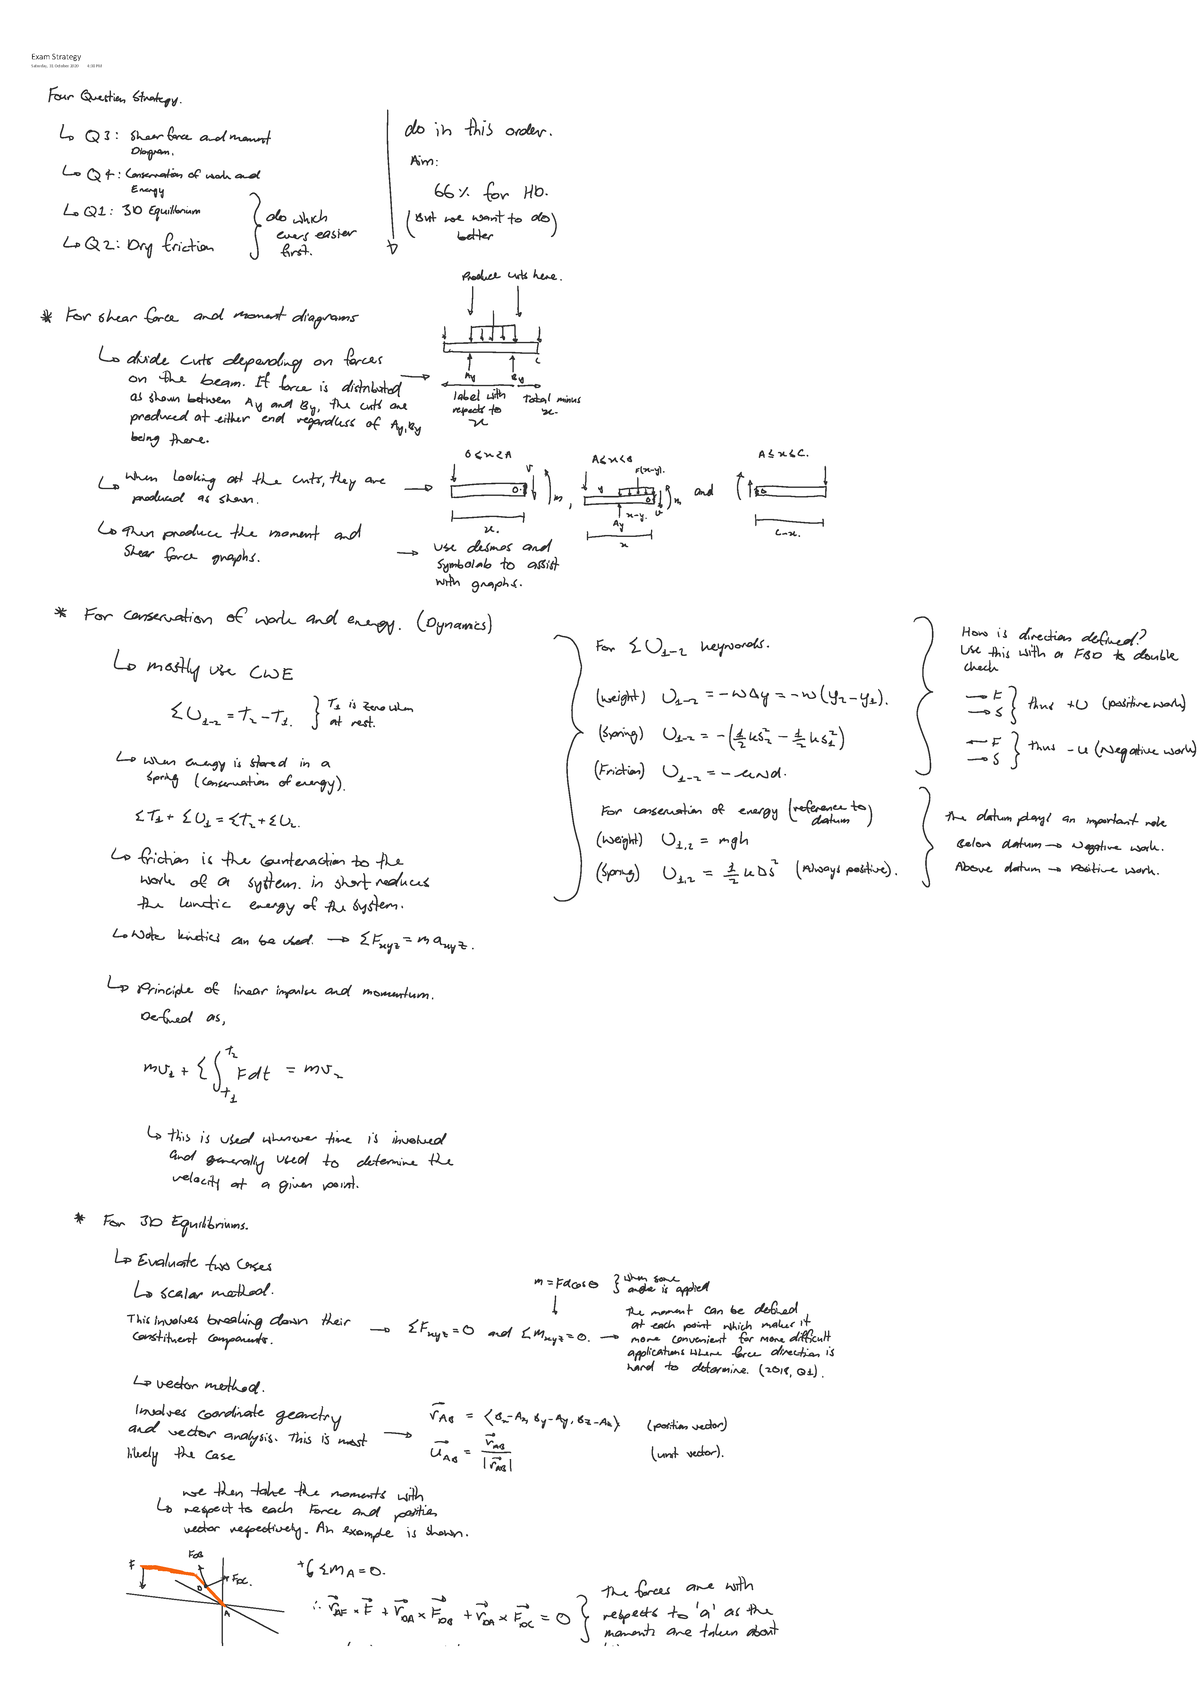 Exam Strategy
Saturday, 31 October 2020 4:00 PM
Four Question Strategy.
↳ Q3: Shear force and moment
Diagram.
↳ Q4: Conservation of work and
Energy
↳ Q1: 3D Equilibrium
↳ Q2: Dry friction
do which
evers easier
first.
do in this order.
Aim:
66% for HD.
(But we want to do
better)
* For shear force and moment diagrams
↳ divide cuts depending on forces
on the beam. If force is distributed
as shown between Ay and By, the cuts are
produced at either end regardless of Ay, By
being there.
Produce cuts here.
C
Ay
By
label with
respects to
x
Total minus
x.
↳ When looking at the cuts, they are
produced as shown.
0≤x≤A
V
O
m,
x.
A≤x≤B
F(x-y).
y
x-y.
V
m
Ay
x
and
A≤x≤C.
O
C-x.
↳ Then produce the moment and
Shear force graphs.
→ use desmos and
symbolab to assist
with graphs.
* For conservation of work and energy. (Dynamics)
↳ mostly use CWE
ΣU₁₋₂ = T₂ - T₁. } T₁ is zero when
at rest.
↳ when energy is stored in a
Spring (conservation of energy).
ΣT₁ + ΣU₁ = ΣT₂ + ΣU₂.
↳ friction is the counteraction to the
work of a system. in short reduces
the kinetic energy of the system.
↳ Note kinetics can be used. → ΣFxyz = m axyz.
For ΣU₁₋₂ keywords.
(weight) U₁₋₂ = -wΔy = -w(y₂-y₁).
(Spring) U₁₋₂ = -(½ks₂² - ½ks₁²)
(Friction) U₁₋₂ = -μNd.
For conservation of energy (reference to
datum)
(weight) U₁,₂ = mgh
(Spring) U₁,₂ = ½kΔs² (Always positive).
How is direction defined?
Use this with a FBD to double
check
→ F
→ S } thus +U (positive work)
← F
→ S } thus -U (Negative work)
The datum plays an important role
Below datum → Negative work.
Above datum → Positive work.
↳ Principle of linear impulse and momentum.
Defined as,
mv₁ + Σ∫ T₂ T₁ Fdt = mv₂
↳ this is used whenever time is involved
and generally used to determine the
velocity at a given point.
* For 3D Equilibriums.
↳ Evaluate two cases
↳ scalar method.
This involves breaking down their
constituent components.
→ ΣFxyz = 0 and Σmxyz = 0. →
m = Fdcosθ } when some
angle is applied
the moment can be defined
at each point which makes it
more convenient for more difficult
applications where force direction is
hard to determine. (2018, Q1).
↳ vector method.
Involves coordinate geometry
and vector analysis. This is most
likely the case
→ r⃗AB = ⟨Bx-Ax, By-Ay, Bz-Az⟩ (position vector)
u⃗AB = r⃗AB / |r⃗AB| (unit vector).
we then take the moments with
↳ respect to each Force and position
vector respectively. An example is shown.
F
FDB
FDC.
D
A
+↺ ΣmA = 0.
∴ r⃗AF × F⃗ + r⃗DA × F⃗DB + r⃗DA × F⃗DC = 0
The forces are with
respects to 'a' as the
moments are taken about